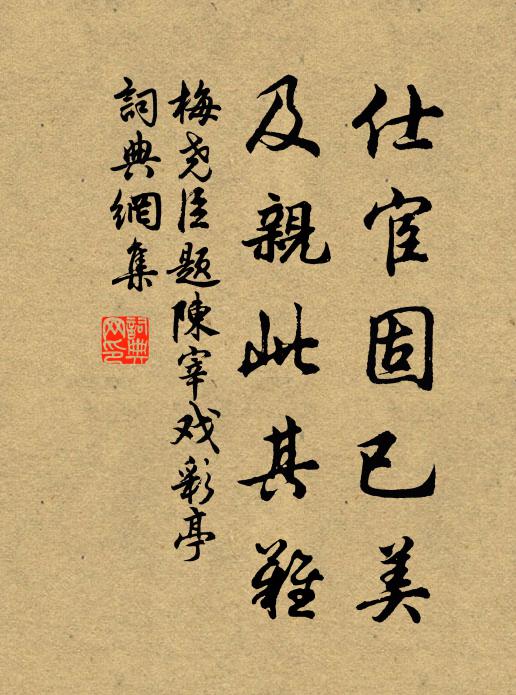 仕宦固已美
及親此其難
梅尧臣题陳宰戏彩亭
詞典網集
詞典
网印